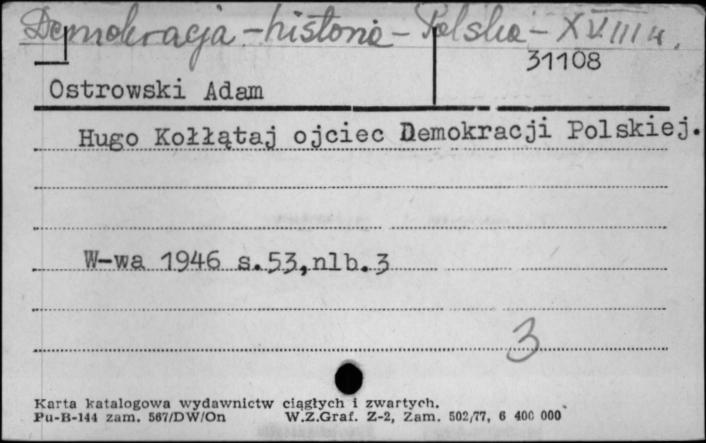 Demokracja - historia - Polska - XVIII w.
31108
Ostrowski Adam
Hugo Kołłątaj ojciec Demokracji Polskiej.
W-wa 1946 s.53,nlb.3
3
Karta katalogowa wydawnictw ciągłych i zwartych.
Pu-B-144 zam. 567/DW/On W.Z.Graf. Z-2, Zam. 502/77, 6 400 000